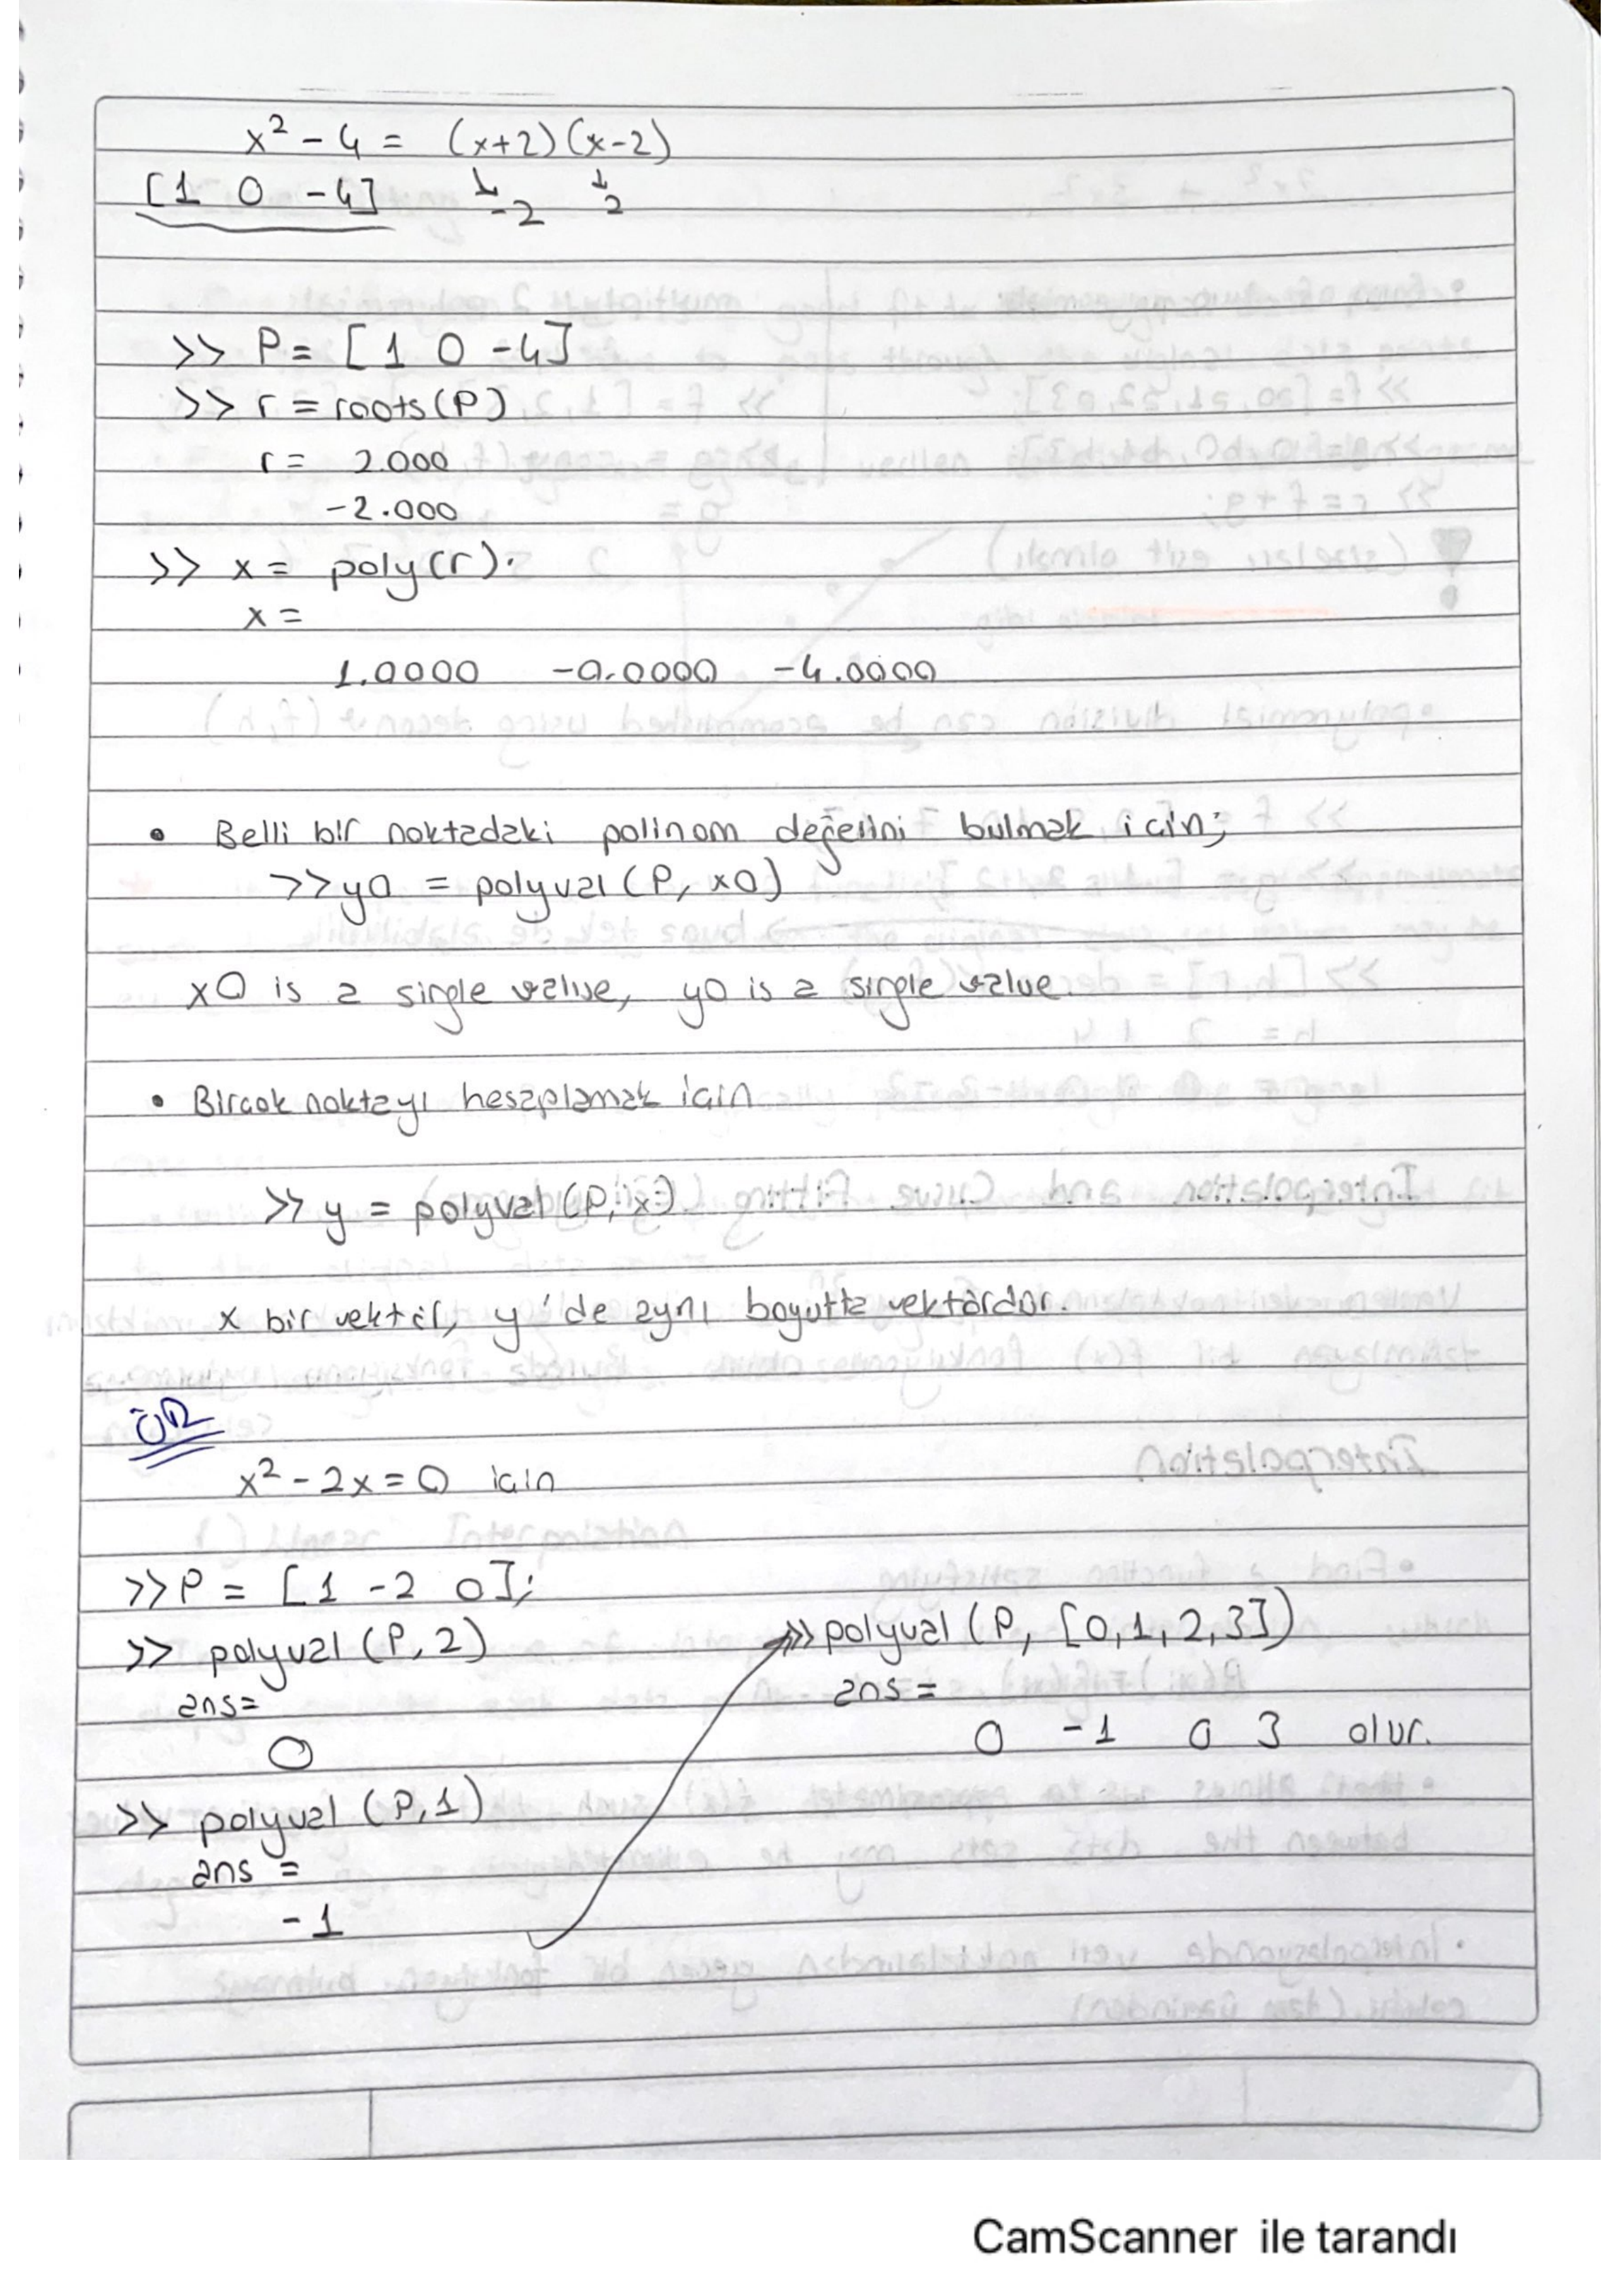 x² - 4 = (x+2)(x-2)
[1 0 -4] ↓ -2 ↓ 2
>> P = [1 0 -4]
>> r = roots(P)
r = 2.000
-2.000
>> x = poly(r).
x =
1.0000 -0.0000 -4.0000
• Belli bir noktadaki polinom değerini bulmak için;
>> y0 = polyval(P, x0)
x0 is a single value, y0 is a single value.
• Birçok noktayı hesaplamak için
>> y = polyval(P, x)
x bir vektör, y'de aynı boyutta vektördür.
ÖR
x² - 2x = 0 için
>> P = [1 -2 0];
>> polyval(P, 2)
ans=
0
>> polyval(P, 1)
ans =
-1
>> polyval(P, [0,1,2,3])
ans =
0 -1 0 3 olur.
CamScanner ile tarandı